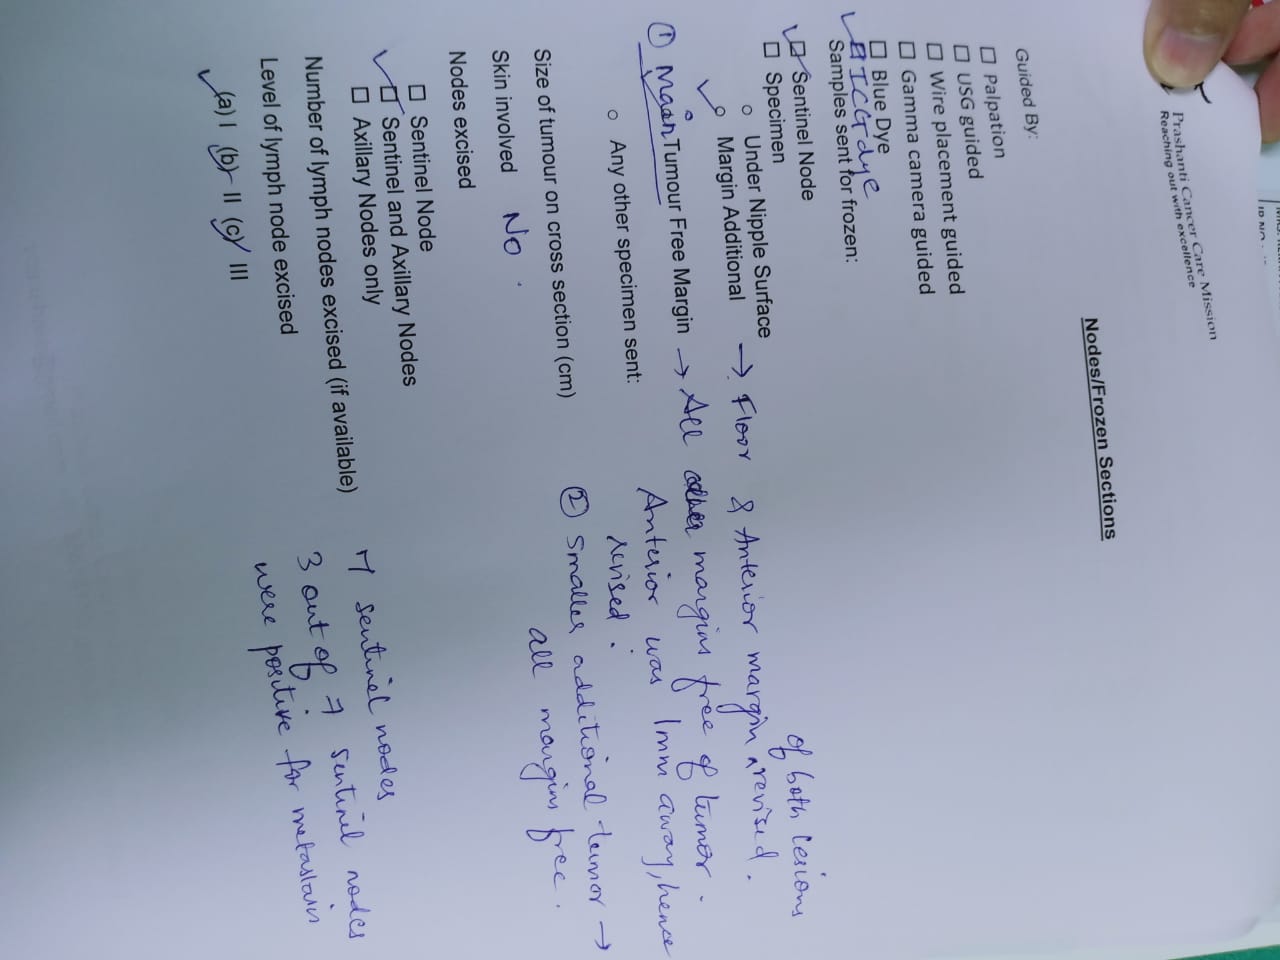 Prashanti Cancer Care Mission
Reaching out with excellence
Nodes/Frozen Sections
Guided By:
☐ Palpation
☐ USG guided
☐ Wire placement guided
☐ Gamma camera guided
☐ Blue Dye
✓ ☑ ICG dye
Samples sent for frozen:
✓ ☑ Sentinel Node
☐ Specimen
○ Under Nipple Surface
✓ ○ Margin Additional → Floor & Anterior margin of both lesions revised.
① Main Tumour Free Margin → All other margins free of tumor.
Anterior was 1mm away, hence
revised.
○ Any other specimen sent:
② Smaller additional tumor →
all margins free.
Size of tumour on cross section (cm)
Skin involved No.
Nodes excised
☐ Sentinel Node
✓ ☑ Sentinel and Axillary Nodes
☐ Axillary Nodes only
Number of lymph nodes excised (if available) 7 sentinel nodes
3 out of 7 sentinel nodes
were positive for metastasis
Level of lymph node excised
✓ (a) I (b) II (c) III